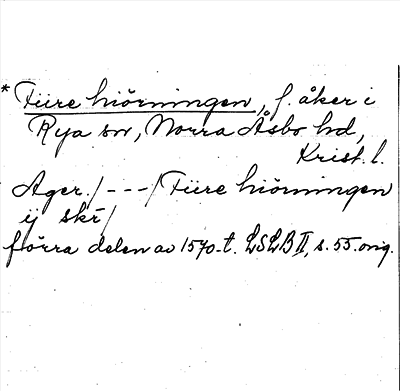 * Fiire hiörningen, f. åker i
Rya sn, Norra Åsbo hd,
Krist. l.
Ager. / - - - / Fiire hiörningen
ij skr /
förra delen av 1570-t. LSLB II, s. 55. orig.